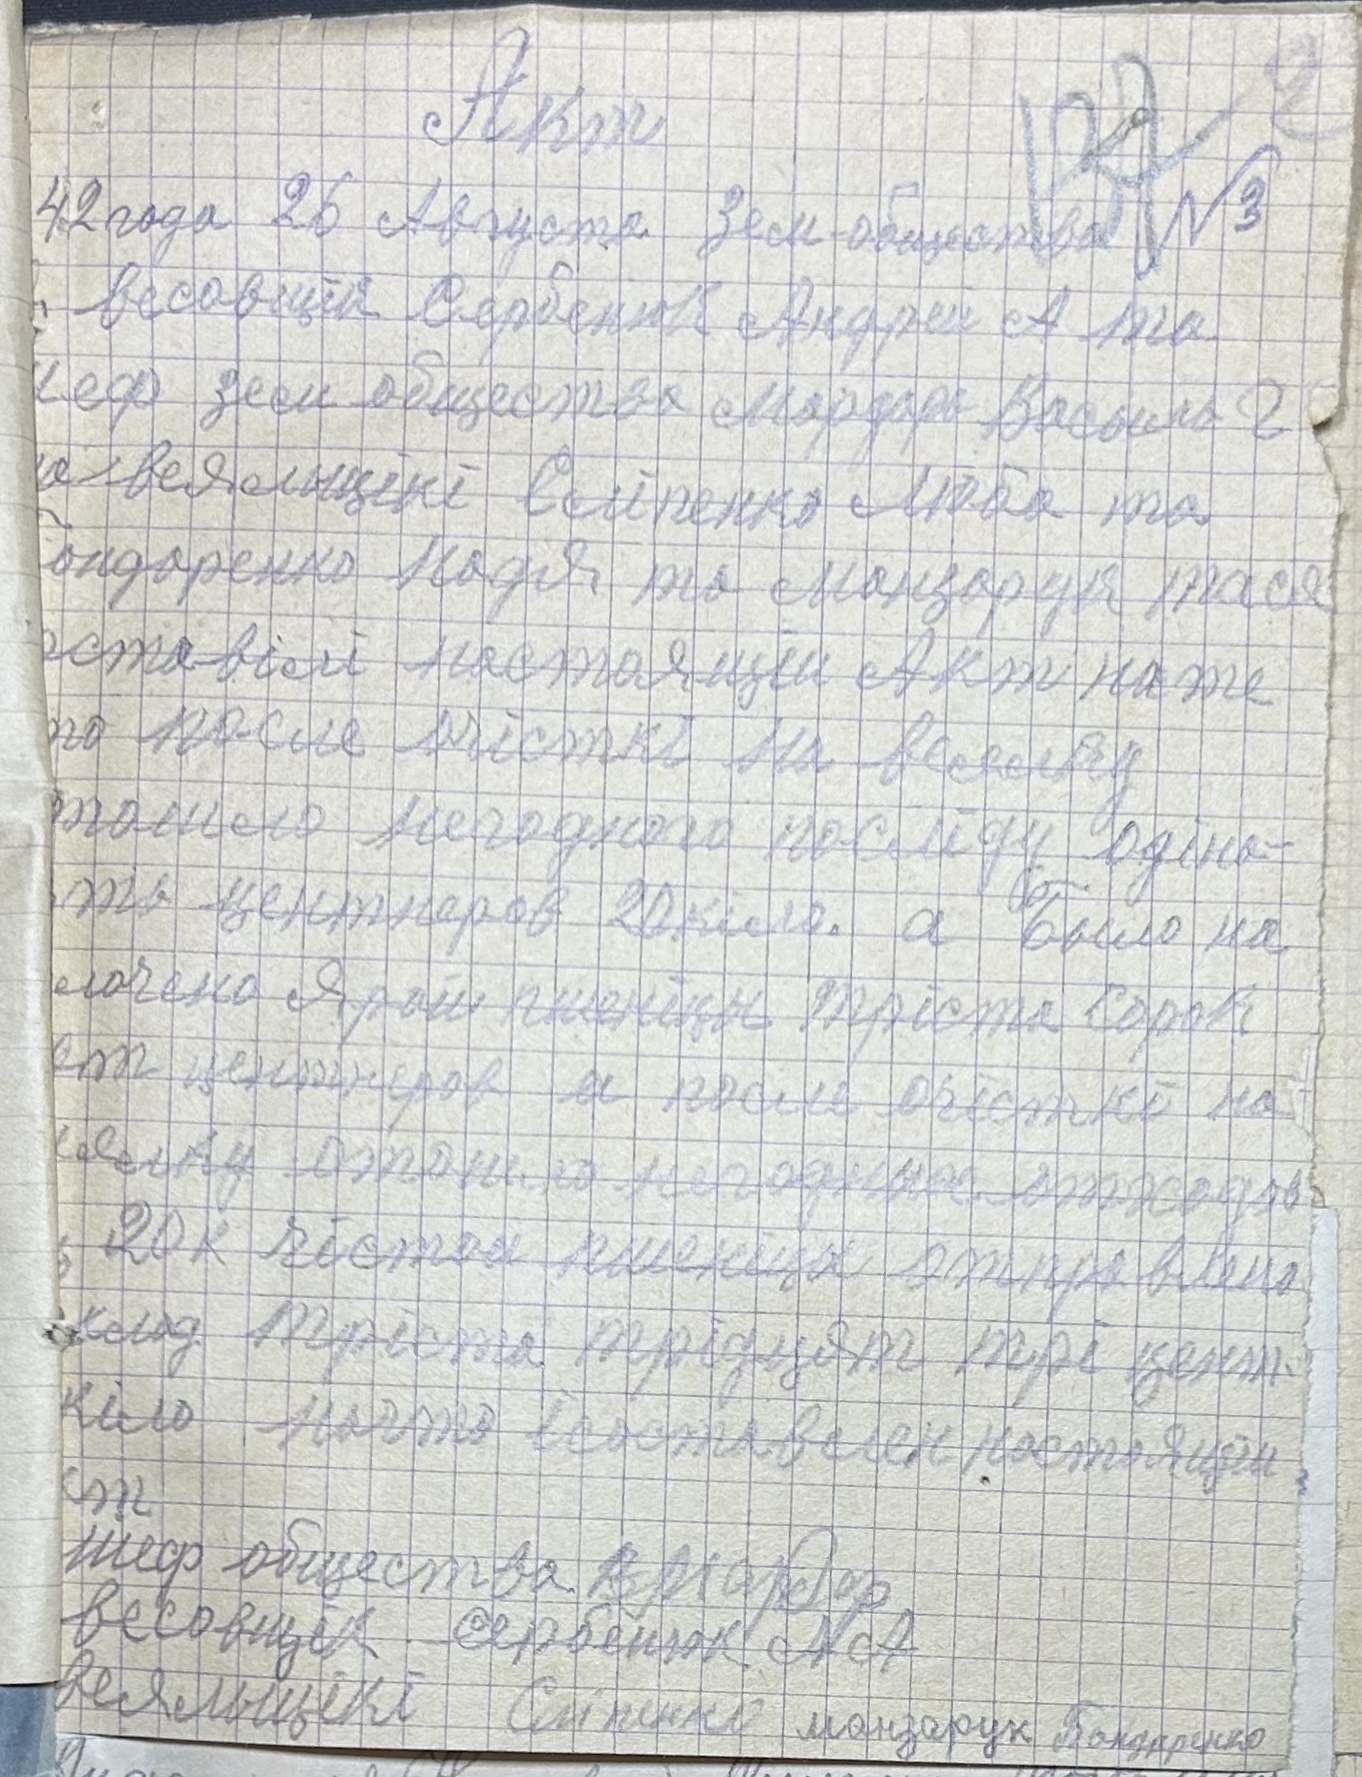 Акт
42 года 26 Августа Зем общества №3
весовщік Сербенюк Андрей А та
шеф зем общества Мардарь Василь Г
веяльщікі Сліпенко Люба та
Бондаренко Надя та Манзарук тася
оставілі настоящій Акт на те
по после очісткі на веялку
негодного посліду одіна-
центнеров 20 кіло. а было на
лочено Ярой пшеніцы Тріста сорок
центнеров а после очісткі на
негодных отходов
20 к чістой пшеніцы отправлено
склад Тріста трідцят трі цент.
кіло начто і составлен настоящій
кт
шеф общества В Мардарь
весовщік Сербенюк А А
Веяльщікі Сліпенко манзарук Бондаренко